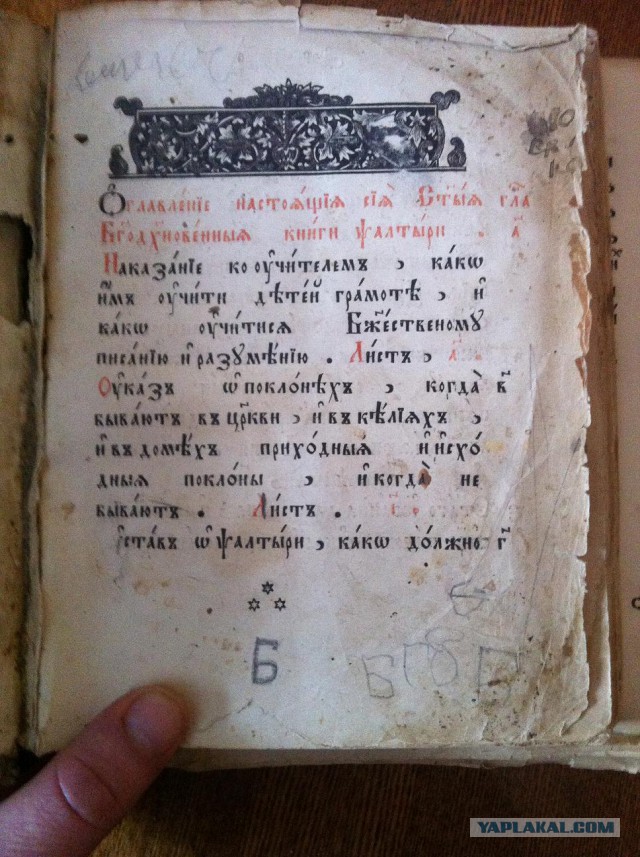 Ѻглавле́нїе настоѧ́щїѧ сїѧ̀ Ст҃ы́ѧ гла
Бг҃одх҃нове́нныѧ кни́ги ѱалты́ри . а҃
Наказа́нїе ко ᲂу҆чи́телемъ , ка́кѡ
и҆̀мъ ᲂу҆чи́ти дѣте́й гра́мотѣ , и҆
ка́кѡ ᲂу҆чи́тисѧ Бж҃е́ственому
писа́нїю и҆ разꙋмѣ́нїю . Ли́стъ , а҃.
Оу҆ка́зъ ѡ҆ покло́нѣхъ , когда̀ в
быва́ютъ въ цр҃кви , и҆ въ ке́лїѧхъ ,
и҆ въ домѣ́хъ прихо́дныѧ и҆ и҆схо́
дныѧ покло́ны , и҆ когда̀ не
быва́ютъ . Ли́стъ .
ста́въ ѡ҆ ѱалты́ри , ка́кѡ до́лжно г
Б
Б Г Б Г
YAPLAKAL.COM